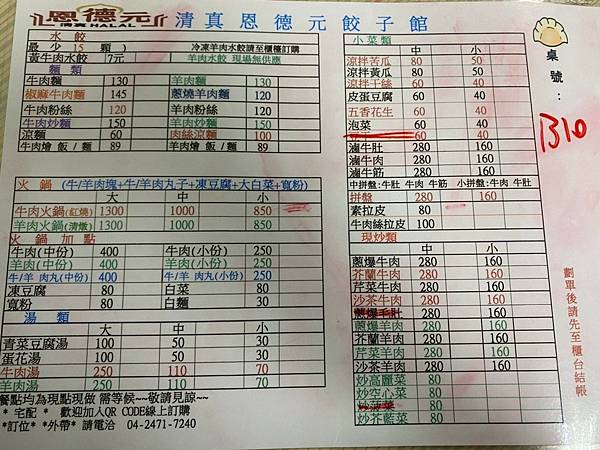 恩德元
清真 HALAL
清真恩德元餃子館
桌號：
1310
水餃
最少15顆) 冷凍羊肉水餃請至櫃檯訂購
黃牛肉水餃 7元 羊肉水餃 現場無供應
麵類
牛肉麵 130 羊肉麵 130
椒麻牛肉麵 145 蔥燒羊肉麵 120
牛肉粉絲 120 羊肉粉絲 120
牛肉炒麵 150 羊肉炒麵 150
涼麵 60 肉絲涼麵 100
牛肉燴 飯/麵 89 羊肉燴 飯/麵 89
火鍋 (牛/羊肉塊+牛/羊肉丸子+凍豆腐+大白菜+寬粉)
大 中 小
牛肉火鍋(紅燒) 1300 1000 850
羊肉火鍋(清燉) 1300 1000 850
火鍋加點
牛肉(中份) 400 牛肉(小份) 250
羊肉(中份) 400 羊肉(小份) 250
牛/羊 肉丸(中份) 400 牛/羊 肉丸(小份) 250
凍豆腐 80 白菜 80
寬粉 80 白麵 30
湯類
大 中 小
青菜豆腐湯 100 50 30
蛋花湯 100 50 30
牛肉湯 250 110 70
羊肉湯 250 110 70
餐點均為現點現做 需等候~~敬請見諒~~
* 宅配 * 歡迎加入QR CODE線上訂購
*訂位* *外帶* 請電洽 04-2471-7240
小菜類
中 小
涼拌苦瓜 80 50
涼拌黃瓜 80 50
涼拌干絲 60 40
皮蛋豆腐 60 40
五香花生 60 40
泡菜 60 40
60 40
滷牛肚 280 160
滷牛肉 280 160
滷牛筋 280 160
中拼盤:牛肚 牛肉 牛筋 小拼盤:牛肉 牛肚
拼盤 280 160
素拉皮 80
牛肉絲拉皮 100
現炒類
中 小
蔥爆牛肉 280 160
芥蘭牛肉 280 160
芹菜牛肉 280 160
沙茶牛肉 280 160
蔥爆毛肚 280 160
蔥爆羊肉 280 160
芥蘭羊肉 280 160
芹菜羊肉 280 160
沙茶羊肉 280 160
炒高麗菜 80
炒空心菜 80
炒菠菜 80
炒芥藍菜 80
劃單後請先至櫃台結帳